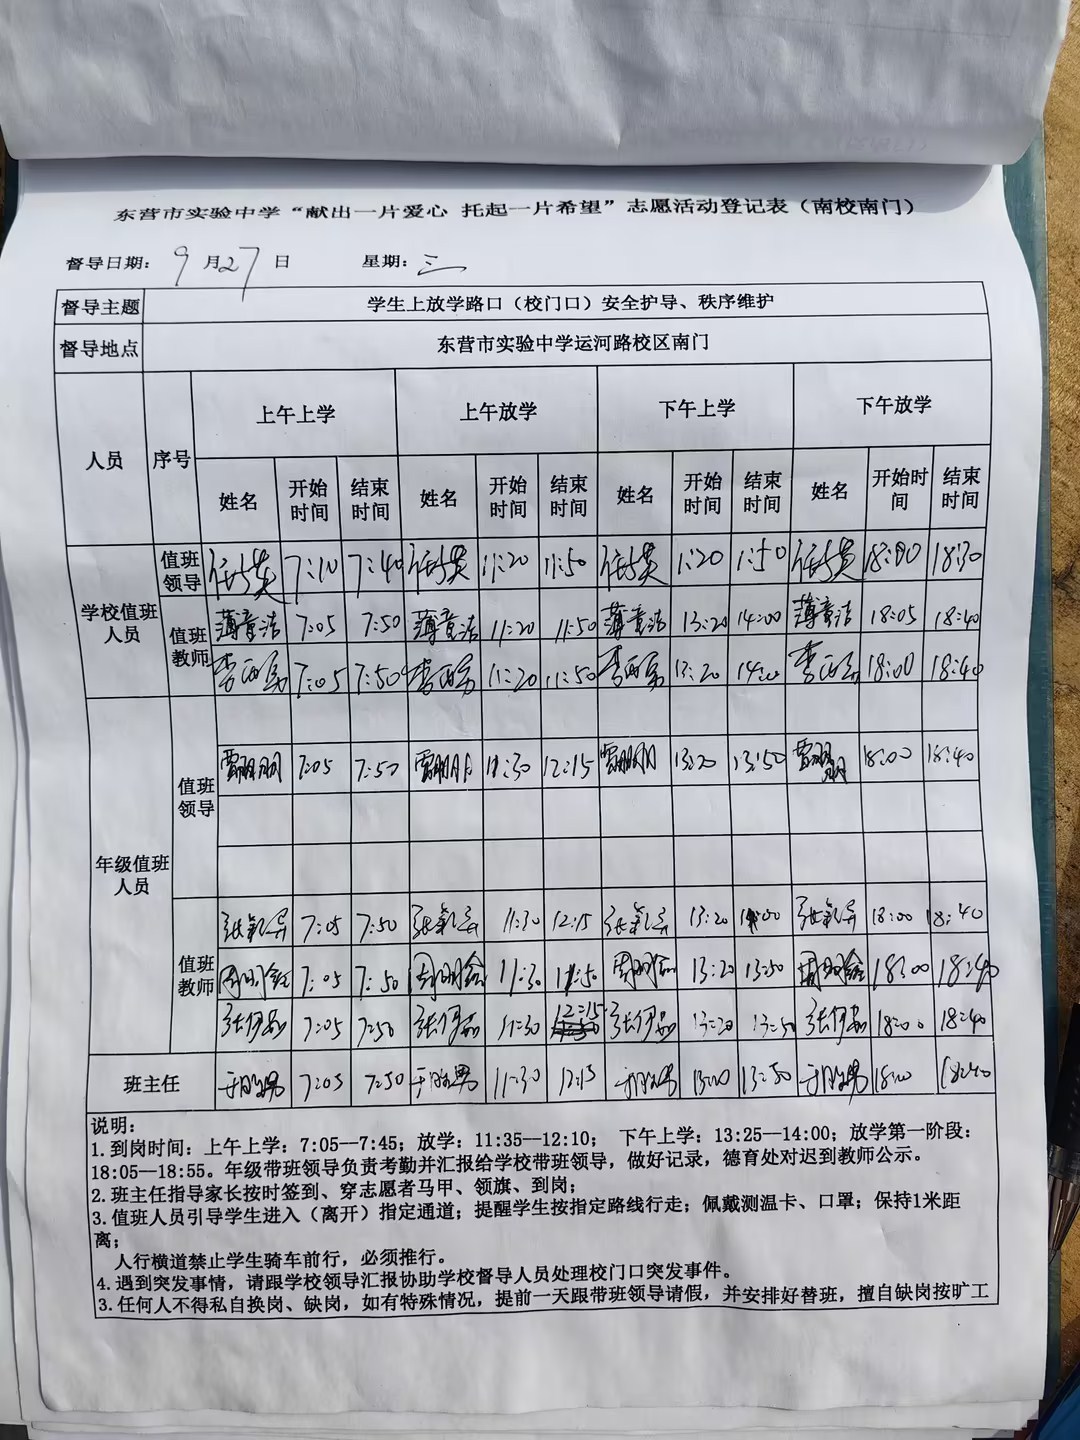 东营市实验中学“献出一片爱心 托起一片希望”志愿活动登记表（南校南门）
督导日期： 9 月 27 日 星期： 三
督导主题 学生上放学路口（校门口）安全护导、秩序维护
督导地点 东营市实验中学运河路校区南门
人员 序号 上午上学 上午放学 下午上学 下午放学
姓名 开始时间 结束时间 姓名 开始时间 结束时间 姓名 开始时间 结束时间 姓名 开始时间 结束时间
学校值班人员 值班领导 7:10 7:40 11:20 11:50 1:20 1:50 18:00 18:30
值班教师 薄童洁 7:05 7:50 薄童洁 11:20 11:50 薄童洁 13:20 14:00 薄童洁 18:05 18:40
7:05 7:50 11:20 11:50 13:20 14:00 18:00 18:40
年级值班人员 值班领导 贾朋朋 7:05 7:50 贾朋朋 11:30 12:15 贾朋朋 13:20 13:50 贾朋朋 18:00 18:40
值班教师 7:05 7:50 11:30 12:15 13:20 14:00 18:00 18:40
周明鑫 7:05 7:50 周明鑫 11:30 11:50 周明鑫 13:20 13:50 周明鑫 18:00 18:40
7:05 7:50 11:30 12:15 13:20 13:50 18:00 18:40
班主任 7:05 7:50 11:30 12:15 13:50 18:40
说明：
1. 到岗时间：上午上学：7:05--7:45；放学：11:35--12:10； 下午上学：13:25--14:00；放学第一阶段：
18:05--18:55。年级带班领导负责考勤并汇报给学校带班领导，做好记录，德育处对迟到教师公示。
2. 班主任指导家长按时签到、穿志愿者马甲、领旗、到岗；
3. 值班人员引导学生进入（离开）指定通道；提醒学生按指定路线行走；佩戴测温卡、口罩；保持1米距
离；
人行横道禁止学生骑车前行，必须推行。
4. 遇到突发事情，请跟学校领导汇报协助学校督导人员处理校门口突发事件。
3. 任何人不得私自换岗、缺岗，如有特殊情况，提前一天跟带班领导请假，并安排好替班，擅自缺岗按旷工